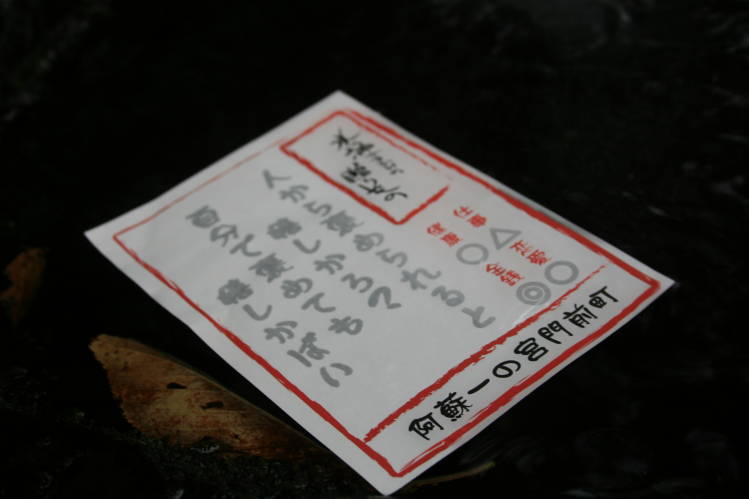 仕事△ 恋愛○
健康○ 金銭◎
人から褒められると
嬉しかろ
自分で褒めても
嬉しかばい
阿蘇一の宮門前町